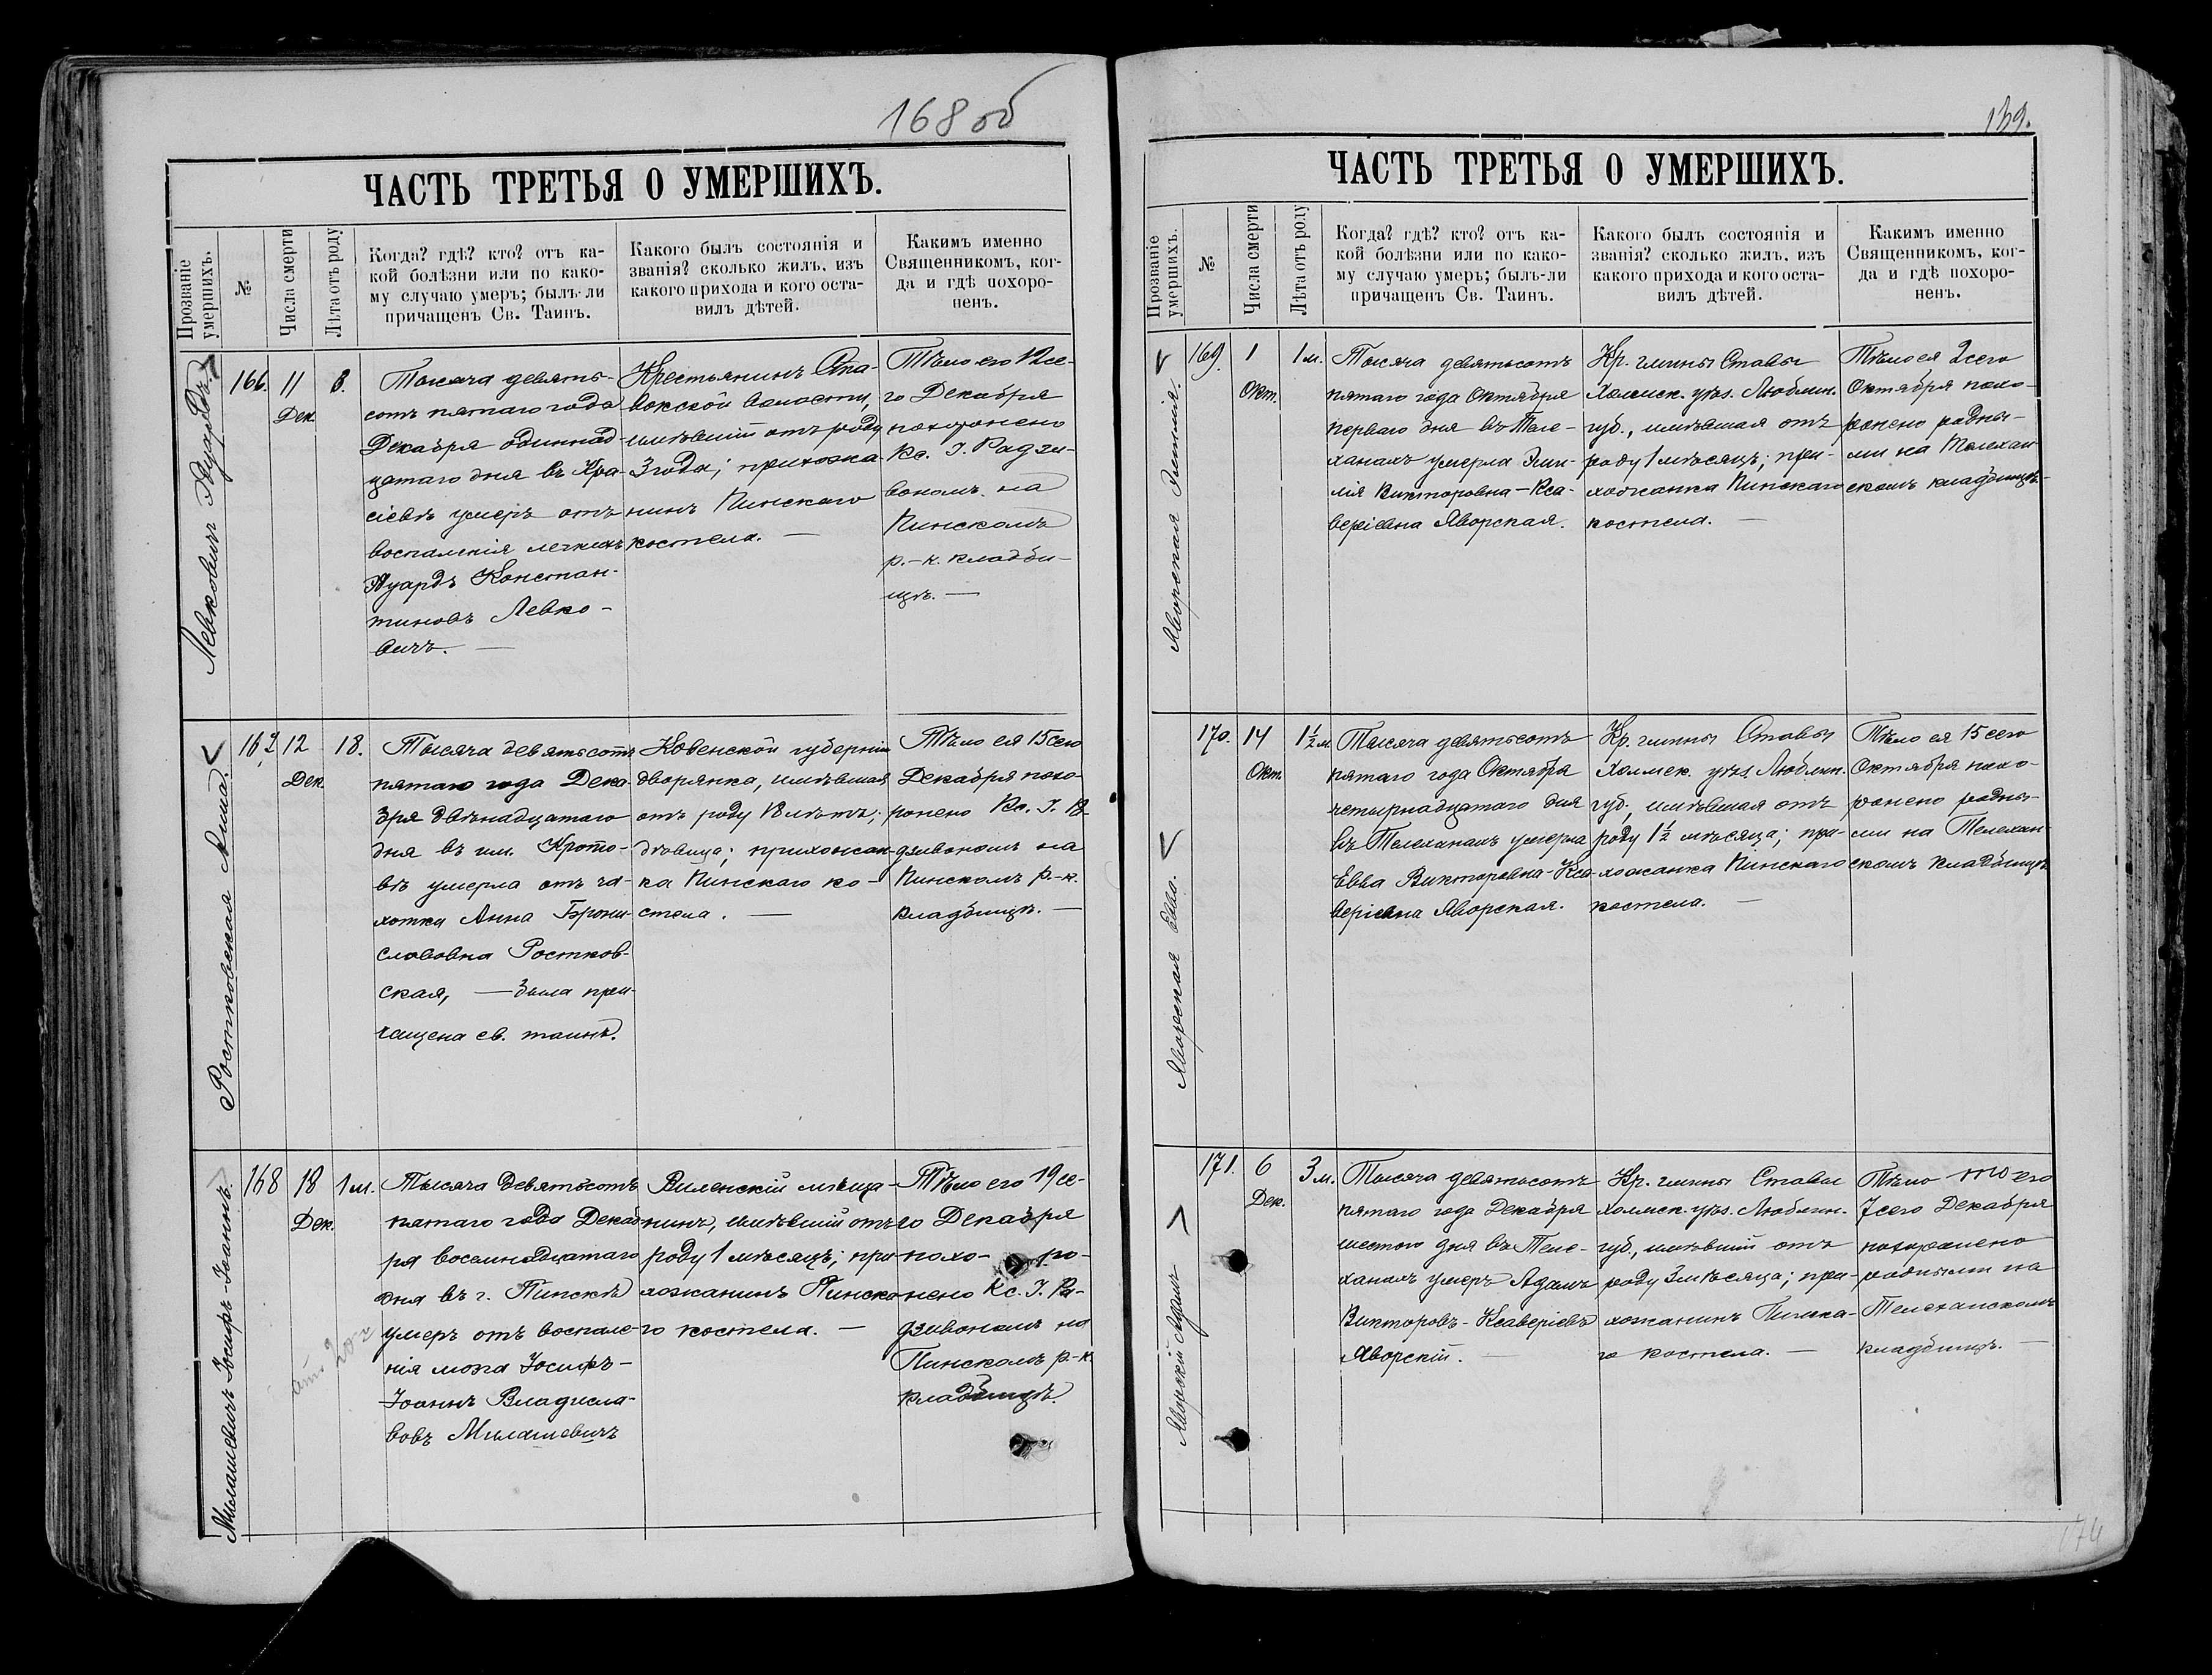 168 об
ЧАСТЬ ТРЕТЬЯ О УМЕРШИХЪ.
Прозваніе умершихъ.
№
Числа смерти
Лѣта отъ роду
Когда? гдѣ? кто? отъ ка-
кой болѣзни или по како-
му случаю умеръ; былъ-ли
причащенъ Св. Таинъ.
Какого былъ состоянія и
званія? сколько жилъ, изъ
какого прихода и кого оста-
вилъ дѣтей.
Какимъ именно
Священникомъ, ког-
да и гдѣ похоро-
ненъ.
Левковичъ
166.
11
Дек.
3.
Тысяча девять-
сотъ пятаго года
Декабря одиннад-
цатаго дня въ Кра-
сіевѣ умеръ отъ
воспаленія легкихъ
Эдуардъ Констан-
тиновъ Левко-
вичъ. —
Крестьянинъ
волости,
имѣвшій отъ роду
3 года; прихожа-
нинъ Пинскаго
костела. —
Тѣло его 12 се-
го Декабря
похоронено
Кс. І. Радзи-
вономъ на
Пинскомъ
р.-к. кладби-
щѣ. —
Ростковская Анна.
167
12
Дек.
18.
Тысяча девятьсотъ
пятаго года Дека-
бря двѣнадцатаго
дня въ им. Крото-
вѣ умерла отъ ча-
хотки Анна Брони-
славовна Ростков-
ская, — была при-
чащена св. таинъ.
Ковенской губерніи
дворянка, имѣвшая
отъ роду 18 лѣтъ;
дѣвица; прихожан-
ка Пинскаго ко-
стела. —
Тѣло ея 15 сего
Декабря похо-
ронено Кс. І. Ра-
дзивономъ на
Пинскомъ р.-к.
кладбищѣ. —
Милашевичъ Іосифъ-Іоаннъ.
168
18
Дек.
1 м.
Тысяча девятьсотъ
пятаго года Декаб-
ря восемнадцатаго
дня въ г. Пинскѣ
умеръ отъ воспале-
нія мозга Іосифъ-
Іоаннъ Владисла-
вовъ Милашевичъ
Виленскій мѣща-
нинъ, имѣвшій отъ
роду 1 мѣсяцъ; при-
хожанинъ Пинска-
го костела. —
Тѣло его 19 се-
го Декабря
похо- ро-
нено Кс. І. Ра-
дзивономъ на
Пинскомъ р-к.
кладбищѣ.
ЧАСТЬ ТРЕТЬЯ О УМЕРШИХЪ.
Прозваніе умершихъ.
№
Числа смерти
Лѣта отъ роду
Когда? гдѣ? кто? отъ ка-
кой болѣзни или по како-
му случаю умеръ; былъ-ли
причащенъ Св. Таинъ.
Какого былъ состоянія и
званія? сколько жилъ, изъ
какого прихода и кого оста-
вилъ дѣтей.
Какимъ именно
Священникомъ, ког-
да и гдѣ похоро-
ненъ.
Яворская Эмилія.
169.
1
Окт.
1 м.
Тысяча девятьсотъ
пятаго года Октября
перваго дня въ Теле-
ханахъ умерла Эми-
лія Викторовна-Кса-
веріевна Яворская.
Кр. гмины Ставы
Холмск. уѣз. Люблин.
губ., имѣвшая отъ
роду 1 мѣсяцъ; при-
хожанка Пинскаго
костела. —
Тѣло ея 2 сего
Октября похо-
ронено родны-
ми на Телехан-
скомъ кладбищѣ. —
Яворская Евва.
170.
14
Окт.
1½ м.
Тысяча девятьсотъ
пятаго года Октября
четырнадцатаго дня
въ Телеханахъ умерла
Евва Викторовна-Кса-
веріевна Яворская.
Кр. гмины Ставы
Холмск. уѣз. Люблин.
губ., имѣвшая отъ
роду 1½ мѣсяца; при-
хожанка Пинскаго
костела. —
Тѣло ея 15 сего
Октября похо-
ронено родны-
ми на Телехан-
скомъ кладбищѣ.
Яворскій Адамъ
171.
6
Дек.
3 м.
Тысяча девятьсотъ
пятаго года Декабря
шестого дня въ Теле-
ханахъ умеръ Адамъ
Викторовъ-Ксаверіевъ
Яворскій. —
Кр. гмины Ставы
Холмск. уѣз. Люблин.
губ., имѣвшій отъ
роду 3 мѣсяца; при-
хожанинъ Пинска-
го костела. —
Тѣло его
7 сего Декабря
похоронено
родными на
Телеханскомъ
кладбищѣ. —